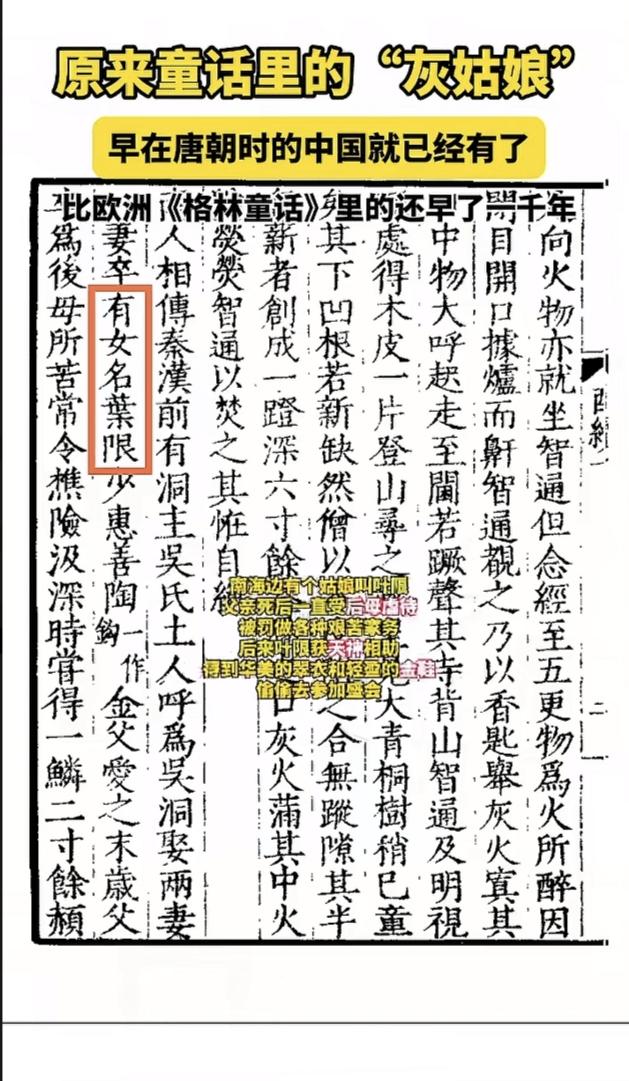 原来童话里的“灰姑娘”
早在唐朝时的中国就已经有了
比欧洲《格林童话》里的还早了一千年
向火物亦就坐智通但念經至五更物爲火所醉因
目開口據爐而鼾智通覩之乃以香匙舉灰火寘其
中物大呼起走至閫若蹶聲其寺背山智通及明視
處得木皮一片登山尋之
大青桐樹稍已童
其下凹根若新缺然僧以
之合無蹤隙其半
薪者創成一蹬深六寸餘
口灰火蒲其中火
熒熒智通以焚之其恠自
人相傳秦漢前有洞主吳氏土人呼爲吳洞娶兩妻
妻卒有女名葉限少惠善陶鈎一作金父愛之末歲父
爲後母所苦常令樵險汲深時甞得一鱗二寸餘頳
南海边有个姑娘叫叶限
父亲死后一直受后母虐待
被罚做各种艰苦家务
后来叶限获天神相助
得到华美的翠衣和轻盈的金鞋
偷偷去参加盛会
二